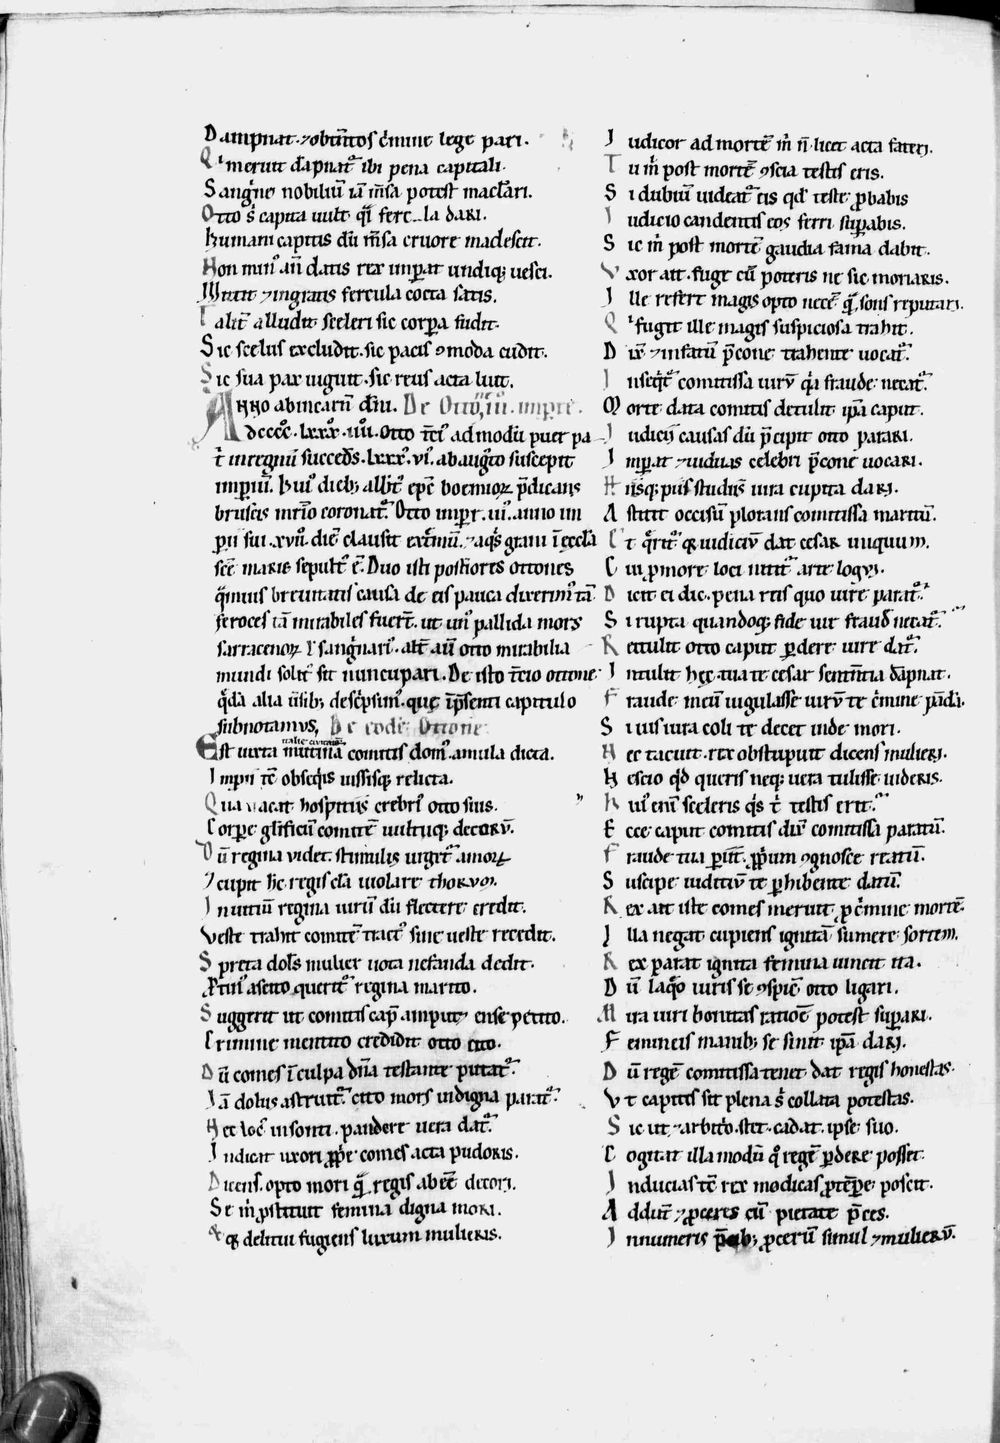 Dampnat. ⁊ obtētos c̄mine lege pari.
Qͥ meruit dāpnat᷑ ibi pena capitali.
Sangͥne nobiliū iā m̄sa potest maclari.
Otto s; capita uult qͥ fercla dari.
Humani capitis dū m̄sa cruore madescit.
Non minꝰ aū datis rex imꝑat undiqꝫ uesci.
Mittit ⁊ ingratis fercula cocta satis.
Talit᷑ alludit sceleri sic corꝑa fudit.
Sic scelus excludit. sic pacis ꝯmoda cudit.
Sic sua pax uiguit. sic reus acta luit.
ANNO ab incarū dn̄i. De Ottōe .iii. impr̄e.
dcccc. lxxx. iiii. Otto t̄ciꝰ admodū puer pa
t̄ in regnū succed̄s. lxxx. vi. ab augͣto suscepit
imperiū. Huiꝰ diebꝫ albt᷑ ep̄c boemioꝝ p̄dicans
bruscis mr̄io coronat᷑. Otto impr̄. iii. anno im
ꝑii sui .xvii. diē clausit ext̄mū. ⁊ aqͥsgrani ī ecclā
sc̄e marie sepult᷑ ē. Duo isti postiores ottones
qͣmuis breuitatis causa de eis pauca dixerimꝰ tā
feroces iā mirabiles fuert̄. ut unꝰ pallida mors
sarracenoꝝ ł sangͥnariꝰ. alt̄ aū otto mirabilia
mundi solitꝰ sit nuncupari. De isto t̄cio ottone
qͥdā alia ūsibꝫ desc̄psimꝰ. que ip̄senti capitulo
subnotamus, De eodē Ottone.
italie ciuitatis
Est iuxta mutinā comitis domꝰ amula dicta.
Imꝑii tē obseqͥis iussisqꝫ relicta.
Qua uacat hospitiis crebrꝰ otto suis.
Corꝑe glīficū comitē uultuqꝫ decorū.
Dū regina videt. stimulis urget᷑ amoꝝ
⁊ cupit hc̄ regis clā uiolare thorum.
Inuitiū regina uirum dū flectere credit.
Veste trahit comitē tractꝰ sine ueste recedit.
Spreta dol̄s mulier uota nefanda dedit.
Ꝑtinꝰ asetto querit᷑ regina marito.
Suggerit ut comitis cap̄ amputꝫ ense petito.
Crimine mentito credidit otto cito.
Dū comes ī culpa dn̄a testante putat᷑.
Iā dolus astruit᷑. cito mors indigna parat᷑.
Nec locꝰ insonti. pandere uera dat᷑.
Indicat uxori ꝓpͥe comes acta pudoris.
Dicens. opto mori qͣ regis abēē decori.
Se m̄ ꝓstituit femina digna mori.
& qꝫ delitui fugiens luxum mulieris.
Iudicor ad mortē m̄ n̄ licet acta fateri.
Tu m̄ post mortē ꝯscia testis eris.
Si dubiū uideat᷑ eis qd̄ teste ꝓbabis
Iudicio candentis eos ferri suꝑabis.
Sic m̄ post mortē gaudia fama dabit.
Vxor ait. fuge cū poteris ne sic moriaris.
Ille refert magis opto necē qͣ sons reputari.
Qͥ fugit ille magis suspiciosa trahit.
Dix̄ ⁊ infatū p̄cone trahente uocat᷑.
Inseqͥt᷑ comitissa uirū qͥa fraude necat᷑.
Morte data comitis detulit ipā caput.
Iudicii causas dū p̄cipit otto parari.
Imꝑat ⁊ uiduas celebri p̄cone uocari.
Hisqꝫ piis studiis iura cupita dari.
Astitit occisū plorans comitissa maritū.
Et qͥrit᷑ qͣ iudiciū dat cesar iniquum.
Cui ꝓ more loci nitit᷑ arte loqui.
Dicit ei dic. pena reis quo iure parat᷑.
Si rupta quandoqꝫ fide uir fraude necat᷑.
Rettulit otto caput ꝑdere iure dat᷑.
Intulit hec. tua te cesar sentētia dāpnat.
Fraude meū iugulasse uirū te c̄mine pādā.
Si ius iura coli te decet inde mori.
Hec tacuit. rex obstupuit dicens mulieri.
Nescio qd̄ queris neqꝫ uera tulisse uideris.
Huiꝰ enī sceleris qͥs t̄ testis erit.
Ecce caput comitis diū comitissa paratū.
Fraude tua ꝑiit. ꝓpͥum ꝯgnosce reatū.
Suscipe iuditiū te ꝑhibente datū.
Rex ait iste comes meruit ꝓ c̄mine mortē.
Illa negat cupiens ignitā sumere sortem.
Rex parat ignita femina uincit ita.
Dū laqͦo iuris se ꝯspicē otto ligari.
Mira uiri bonitas ratiōe potest suꝑari.
Femineis manibꝫ se sinit ipā dari.
Dū regē comitissa tenet dat regis honestas.
Vt capitis sit plena s; collata potestas.
Sic ut ⁊ arbitͥo. stet. cadat. ipse suo.
Cogitat illa modū qͦ regē ꝑdere posset.
Inducias tē rex modicas ꝓ tēꝑe poscit.
Addūt ⁊ ꝓceres cū pietate p̄ces.
Innumeris p̄cibꝫ ꝓcerū simul ⁊ mulierū.